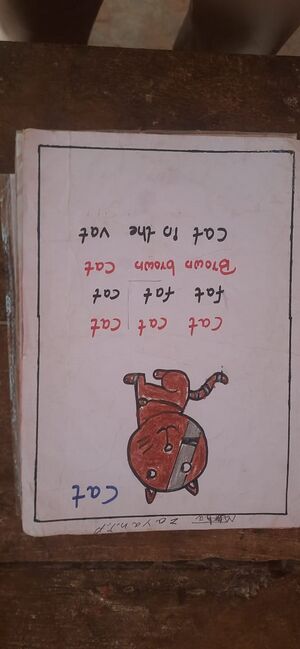 Zayan.T.P
Cat
Cat cat cat
fat fat cat
Brown brown Cat
Cat in the vat